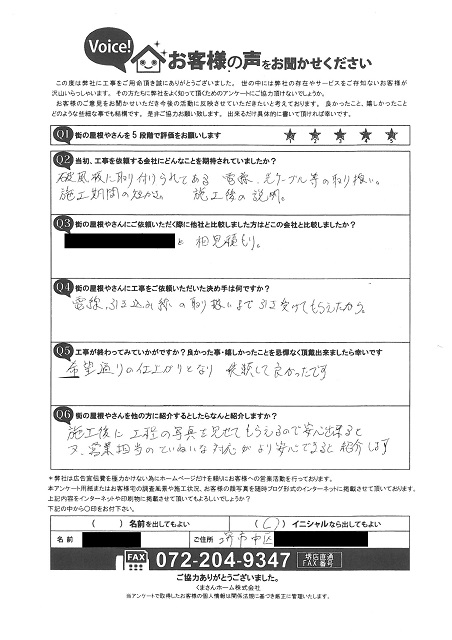 Voice!
お客様の声をお聞かせください
この度は弊社に工事をご用命頂き誠にありがとうございました。 世の中には弊社の存在やサービスをご存知ないお客様が
沢山いらっしゃいます。 その方たちに弊社をよく知って頂くためのアンケートにご協力頂けないでしょうか。
お客様のご意見をお聞かせいただき今後の活動に反映させていただきたいと考えております。 良かったこと、嬉しかったこと
どのような些細な事でも結構です。 是非ご協力お願い致します。 出来るだけ具体的に書いて頂ければ幸いです。
Q1 街の屋根やさんを5段階で評価をお願いします
Q2 当初、工事を依頼する会社にどんなことを期待されていましたか?
破風板に取り付けられてある 電線、光ケーブル等の取り扱い。
施工期間の短かさ。 施工後の説明。
Q3 街の屋根やさんにご依頼いただく際に他社と比較しました方はどこの会社と比較しましたか?
と 相見積もり。
Q4 街の屋根やさんに工事をご依頼いただいた決め手は何ですか?
電線、引き込み線の取り扱いまで引き受けてもらえたから。
Q5 工事が終わってみていかがですか?良かった事・嬉しかったことを忌憚なく頂戴出来ましたら幸いです
希望通りの仕上がりとなり 依頼して良かったです
Q6 街の屋根やさんを他の方に紹介するとしたらなんと紹介しますか?
施工後に工程の写真を見せてもらえるので安心出来ると
又、営業担当のていねいな対応がより安心できると紹介します
*弊社は広告宣伝費を極力かけない為にホームページだけを頼りにお客様への営業活動を行っております。
本アンケート用紙またはお客様宅の調査風景や施工状況、お客様の顔写真を随時ブログ形式のインターネットに掲載させて頂いております。
上記内容をインターネットや印刷物に掲載させて頂いてもよろしいでしょうか?
下記の中から〇印をお付下さい。
( )名前を出してもよい ( )イニシャルなら出してもよい
名前 ご住所 堺市中区
FAX 072-204-9347 堺店直通 FAX番号
ご協力ありがとうございました。
くまさんホーム株式会社
※アンケートで取得したお客様の個人情報は関係法規に基づき厳正に管理いたします。